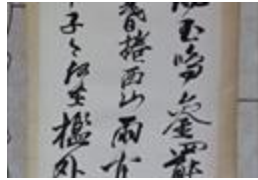 佩玉鳴鸞罷
暮捲西山雨
帝子今何在檻外